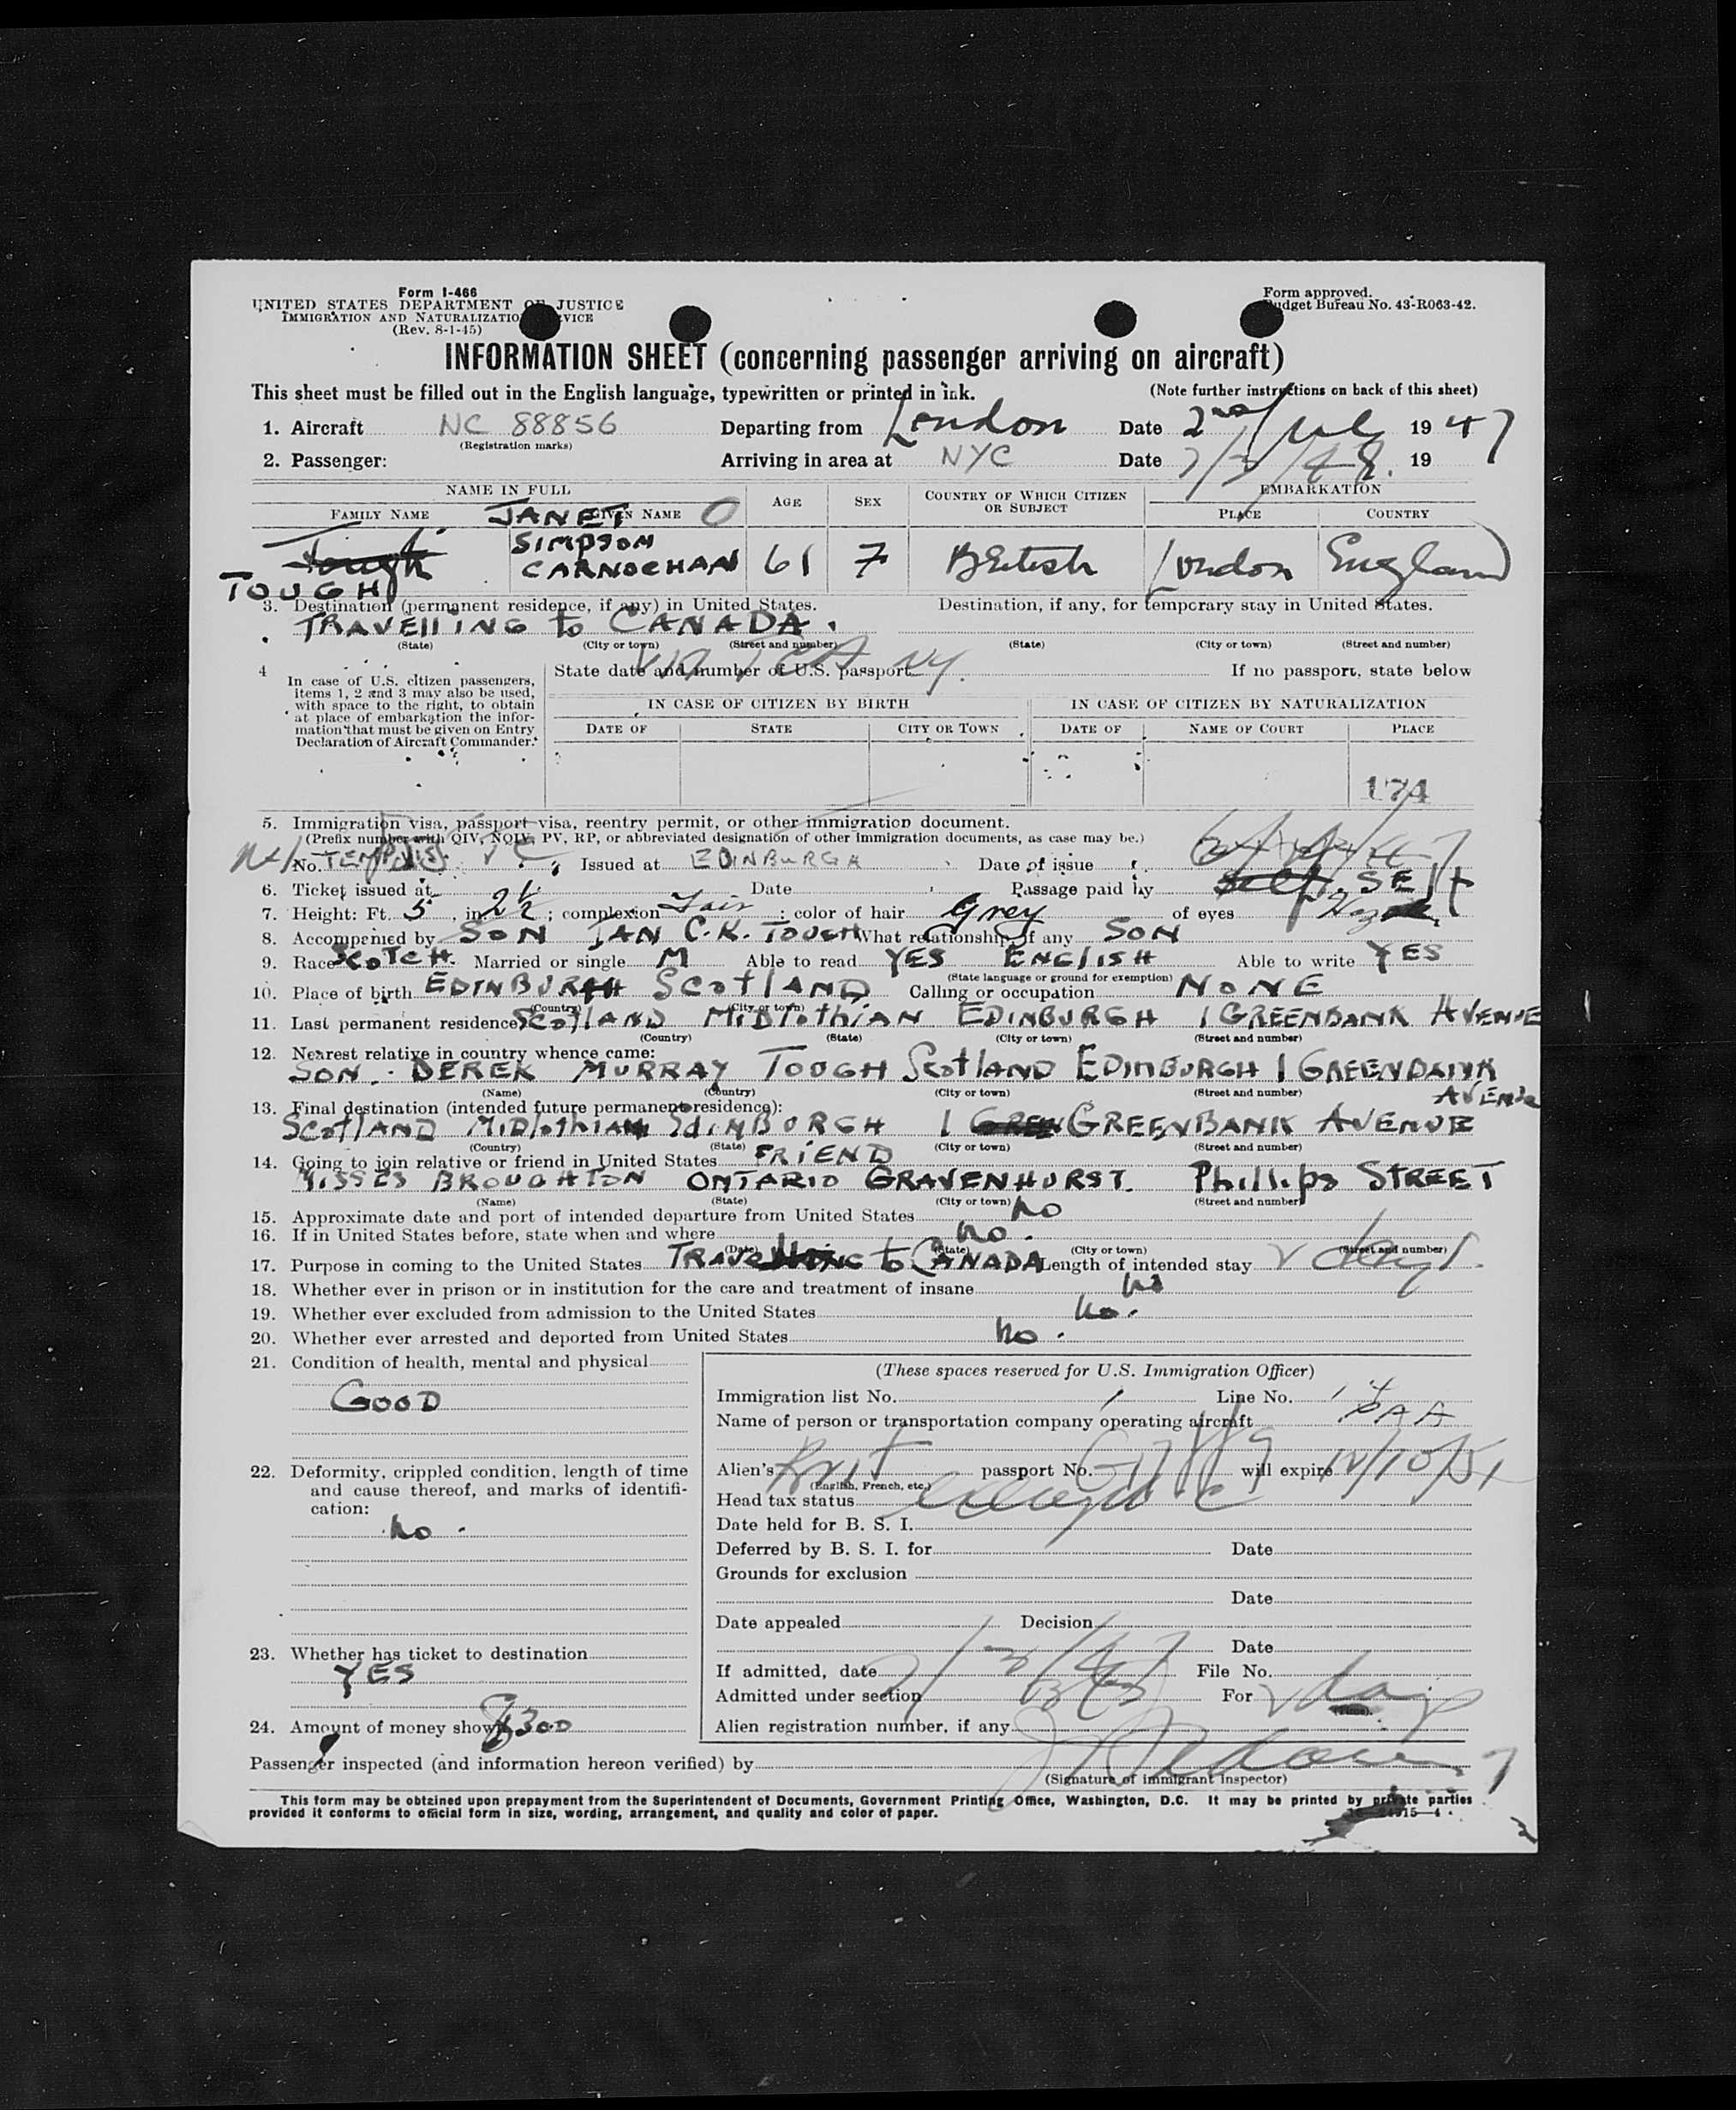 Form I-466
UNITED STATES DEPARTMENT OF JUSTICE
IMMIGRATION AND NATURALIZATION SERVICE
(Rev. 8-1-45)
Form approved.
Budget Bureau No. 43-R063-42.
INFORMATION SHEET (concerning passenger arriving on aircraft)
This sheet must be filled out in the English language, typewritten or printed in ink. (Note further instructions on back of this sheet)
1. Aircraft NC 88856 Departing from London Date 2nd July 1947
(Registration marks)
2. Passenger: Arriving in area at NYC Date 7/3/ 19
NAME IN FULL AGE SEX COUNTRY OF WHICH CITIZEN OR SUBJECT EMBARKATION
FAMILY NAME GIVEN NAME PLACE COUNTRY
JANET
Tough SIMPSON
CARNOCHAN 61 F British London England
TOUGH
3. Destination (permanent residence, if any) in United States. Destination, if any, for temporary stay in United States.
TRAVELLING to CANADA.
(State) (City or town) (Street and number) (State) (City or town) (Street and number)
VIA TCA NY.
4 In case of U.S. citizen passengers, items 1, 2 and 3 may also be used, with space to the right, to obtain at place of embarkation the information that must be given on Entry Declaration of Aircraft Commander.
State date and number of U.S. passport If no passport, state below
IN CASE OF CITIZEN BY BIRTH IN CASE OF CITIZEN BY NATURALIZATION
DATE OF STATE CITY OR TOWN DATE OF NAME OF COURT PLACE
174
5. Immigration visa, passport visa, reentry permit, or other immigration document.
(Prefix number with QIV, NQIV, PV, RP, or abbreviated designation of other immigration documents, as case may be.)
No. Issued at EDINBURGH Date of issue
6. Ticket issued at Date Passage paid by self. SELF
7. Height: Ft. 5, in. 2½; complexion Fair; color of hair Grey of eyes
8. Accompanied by SON IAN C.K. TOUGH What relationship, if any SON
9. Race SCOTCH. Married or single M Able to read YES ENGLISH Able to write YES
(State language or ground for exemption)
10. Place of birth EDINBURGH SCOTLAND Calling or occupation NONE
(Country) (City or town)
11. Last permanent residence SCOTLAND MIDLOTHIAN EDINBURGH 1 GREENBANK AVENUE
(Country) (State) (City or town) (Street and number)
12. Nearest relative in country whence came:
SON. DEREK MURRAY TOUGH SCOTLAND EDINBURGH 1 GREENBANK
AVENUE
(Name) (Country) (City or town) (Street and number)
13. Final destination (intended future permanent residence):
SCOTLAND MIDLOTHIAN EDINBURGH 1 GREENBANK AVENUE
(Country) (State) (City or town) (Street and number)
14. Going to join relative or friend in United States FRIEND
MISSES BROUGHTON ONTARIO GRAVENHURST. Phillips STREET
(Name) (State) (City or town) (Street and number)
15. Approximate date and port of intended departure from United States No
16. If in United States before, state when and where No.
(Date) (State) (City or town) (Street and number)
17. Purpose in coming to the United States TRAVELLING to CANADA Length of intended stay 2 days.
18. Whether ever in prison or in institution for the care and treatment of insane No
19. Whether ever excluded from admission to the United States No.
20. Whether ever arrested and deported from United States No.
21. Condition of health, mental and physical
GOOD
22. Deformity, crippled condition, length of time and cause thereof, and marks of identification:
No.
23. Whether has ticket to destination
YES
24. Amount of money shown $300
(These spaces reserved for U.S. Immigration Officer)
Immigration list No. 1 Line No.
Name of person or transportation company operating aircraft PAA
Alien's Brit passport No. will expire
(English, French, etc.)
Head tax status
Date held for B. S. I.
Deferred by B. S. I. for Date
Grounds for exclusion
Date
Date appealed Decision
Date
If admitted, date 7/3/47 File No.
Admitted under section For 2 days
(Time).
Alien registration number, if any
Passenger inspected (and information hereon verified) by
(Signature of immigrant inspector)
This form may be obtained upon prepayment from the Superintendent of Documents, Government Printing Office, Washington, D.C. It may be printed by private parties
provided it conforms to official form in size, wording, arrangement, and quality and color of paper.